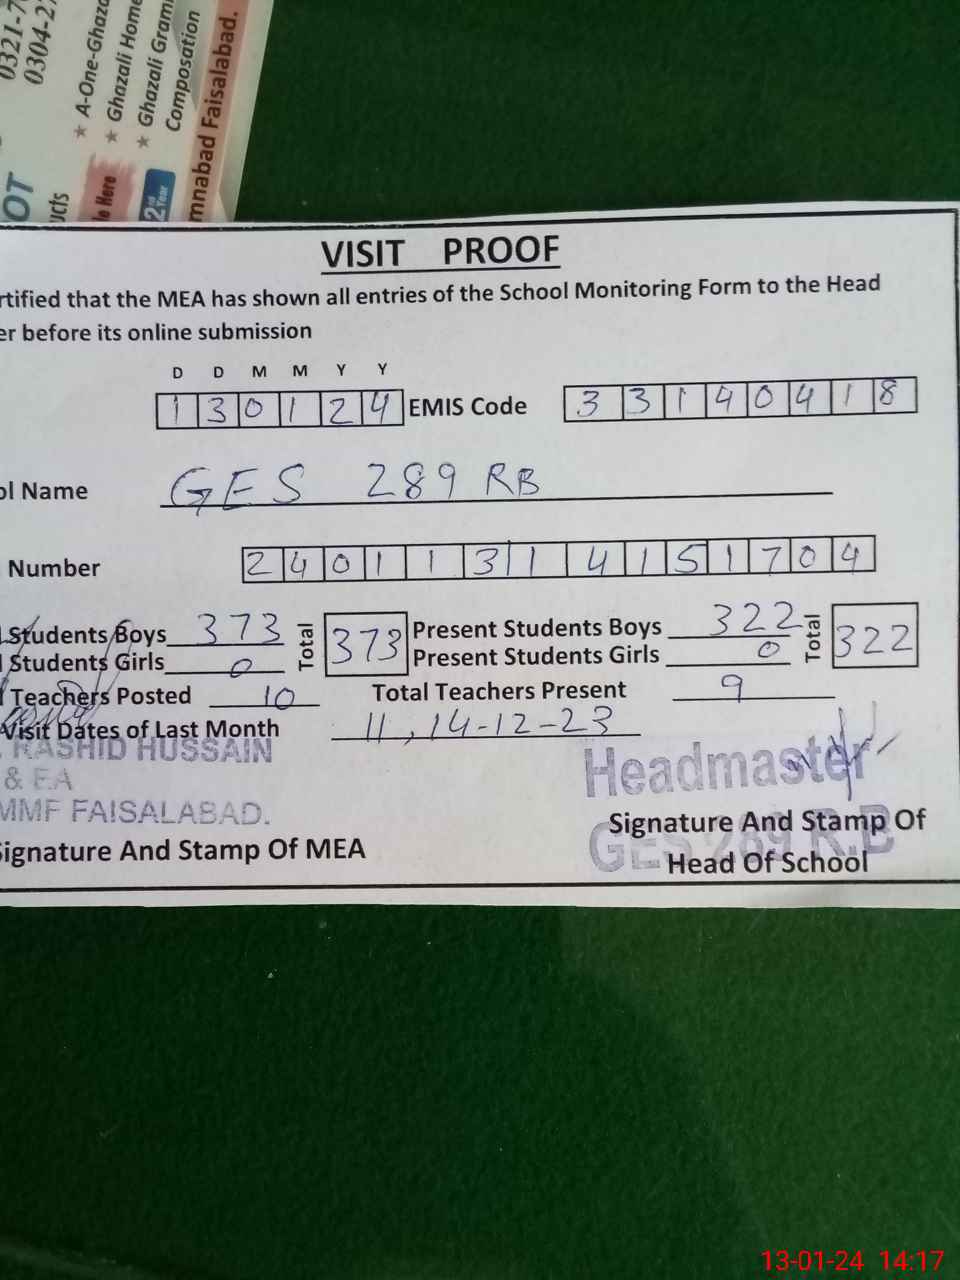 0321-7
0304-27
★ A-One-Ghaza
★ Ghazali Home
★ Ghazali Gram
Composition
mnabad Faisalabad.
OT
ucts
le Here
2nd Year
VISIT PROOF
rtified that the MEA has shown all entries of the School Monitoring Form to the Head
er before its online submission
D D M M Y Y
1 3 0 1 2 4 EMIS Code 3 3 1 4 0 4 1 8
ol Name GES 289 RB
Number 2 4 0 1 1 3 1 4 1 5 1 7 0 4
Students Boys 373 Total 373 Present Students Boys 322 Total 322
Students Girls 0 Present Students Girls 0
Teachers Posted 10 Total Teachers Present 9
Visit Dates of Last Month 11, 14-12-23
RASHID HUSSAIN
& EA
MMF FAISALABAD.
Signature And Stamp Of MEA
Headmaster
GES 289 R.B
Signature And Stamp Of
Head Of School
13-01-24 14:17